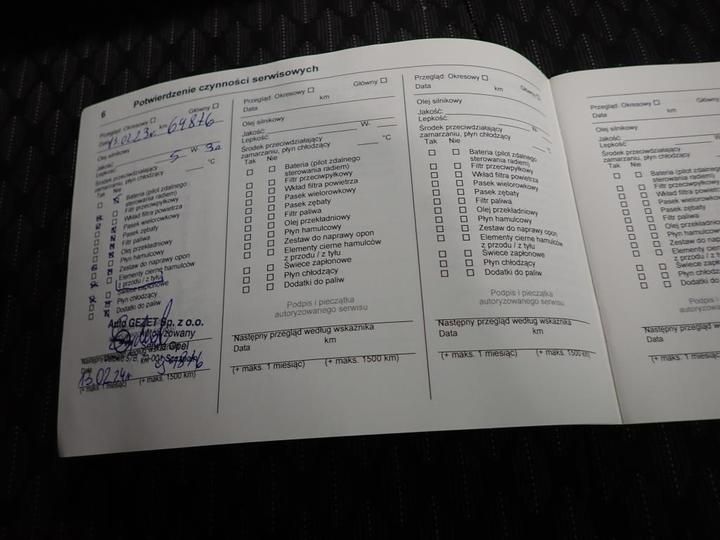 6
Potwierdzenie czynności serwisowych
Przegląd: Okresowy Główny
Data 13.02.23r km 64876
Olej silnikowy
Jakość 5 W- 30
Lepkość
Środek przeciwdziałający °C
zamarzaniu, płyn chłodzący
Tak Nie
Bateria (pilot zdalnego
sterowania radiem)
Filtr przeciwpyłkowy
Wkład filtra powietrza
Pasek wielorowkowy
Pasek zębaty
Filtr paliwa
Olej przekładniowy
Płyn hamulcowy
Zestaw do naprawy opon
Elementy cierne hamulców
z przodu / z tyłu
Świece zapłonowe
Płyn chłodzący
Dodatki do paliw
Auto GEZET Sp. z o.o.
Autoryzowany
Serwis Opel
Data
13.02.24r
(+ maks. 1 miesiąc) (+ maks. 1500 km)
Przegląd: Okresowy Główny
Data km
Olej silnikowy
Jakość W-
Lepkość
Środek przeciwdziałający °C
zamarzaniu, płyn chłodzący
Tak Nie
Bateria (pilot zdalnego
sterowania radiem)
Filtr przeciwpyłkowy
Wkład filtra powietrza
Pasek wielorowkowy
Pasek zębaty
Filtr paliwa
Olej przekładniowy
Płyn hamulcowy
Zestaw do naprawy opon
Elementy cierne hamulców
z przodu / z tyłu
Świece zapłonowe
Płyn chłodzący
Dodatki do paliw
Podpis i pieczątka
autoryzowanego serwisu
Następny przegląd według wskaźnika
Data km
(+ maks. 1 miesiąc) (+ maks. 1500 km)
Przegląd: Okresowy Główny
Data km
Olej silnikowy
Jakość W-
Lepkość
Środek przeciwdziałający °C
zamarzaniu, płyn chłodzący
Tak Nie
Bateria (pilot zdalnego
sterowania radiem)
Filtr przeciwpyłkowy
Wkład filtra powietrza
Pasek wielorowkowy
Pasek zębaty
Filtr paliwa
Olej przekładniowy
Płyn hamulcowy
Zestaw do naprawy opon
Elementy cierne hamulców
z przodu / z tyłu
Świece zapłonowe
Płyn chłodzący
Dodatki do paliw
Podpis i pieczątka
autoryzowanego serwisu
Następny przegląd według wskaźnika
Data km
(+ maks. 1 miesiąc) (+ maks. 1500 km)
Przegląd: Okresowy
Data
Olej silnikowy
Jakość
Lepkość
Środek przeciwdziałający
zamarzaniu, płyn chłodzący
Tak Nie
Bateria (pilot zdalne
sterowania radiem)
Filtr przeciwpyłkowy
Wkład filtra powietrz
Pasek wielorowko
Pasek zębaty
Filtr paliwa
Olej przekładnio
Płyn hamulcow
Zestaw do nap
Elementy cier
z przodu / z ty
Świece zapł
Płyn chłodz
Dodatki do
Podpis
autoryzow
Następny przegląd wed
Data
(+ maks. 1 miesiąc)